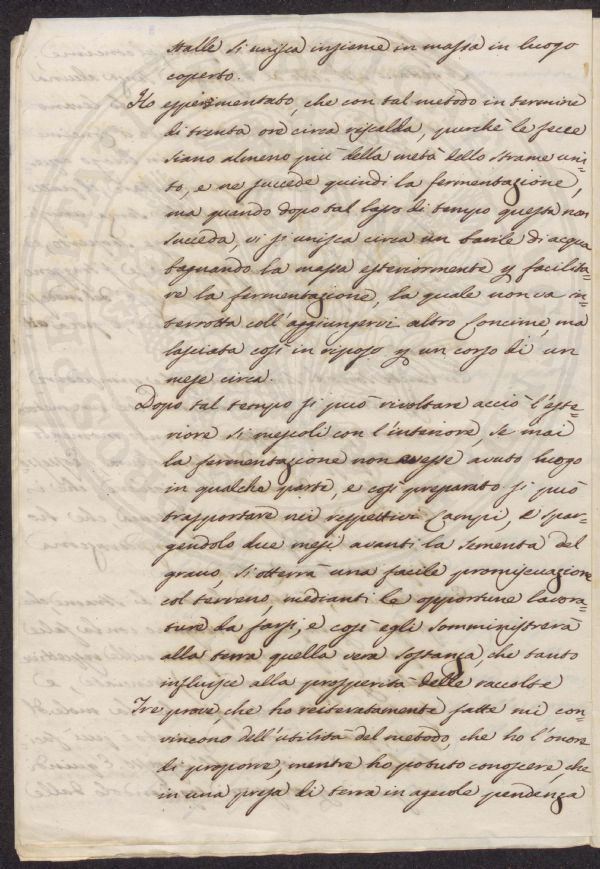 stalle si unisca insieme in massa in luogo
coperto.
Ho esperimentato, che con tal metodo in termine
di trenta ore circa riscalda, purchè le fecce
siano almeno più della metà dello strame uni=
to, e ne succede quindi la fermentazione,
ma quando dopo tal laps di tempo questa non
succeda, vi si unisca circa un barile di acqua
bagnando la massa esteriormente p facilita=
re la fermentazione, la quale non va in=
terrotta coll'aggiungervi altro Concime, ma
lasciata così in riposo p un corso di un
mese circa.
Dopo tal tempo si può rivoltare acciò l'este=
riore si mescoli con l'interiore, se mai
la fermentazione non avesse avuto luogo
in qualche parte, e così preparato si può
trasportare nei rispettivi Campi, e spar=
gendolo due mesi avanti la sementa del
grano, si otterrà una facile promiscuazione
col terreno, medianti le opportune lavora=
ture da farsi, e così egli somministrerà
alla terra quella vera sostanza, che tanto
influisce alla prosperità delle raccolte
Tre prove, che ho reiteratamente fatte mi con=
vincono dell'utilità del metodo, che ho l'onore
di proporre, mentre ho potuto conoscere, che
in una presa di terra in agevole pendenza